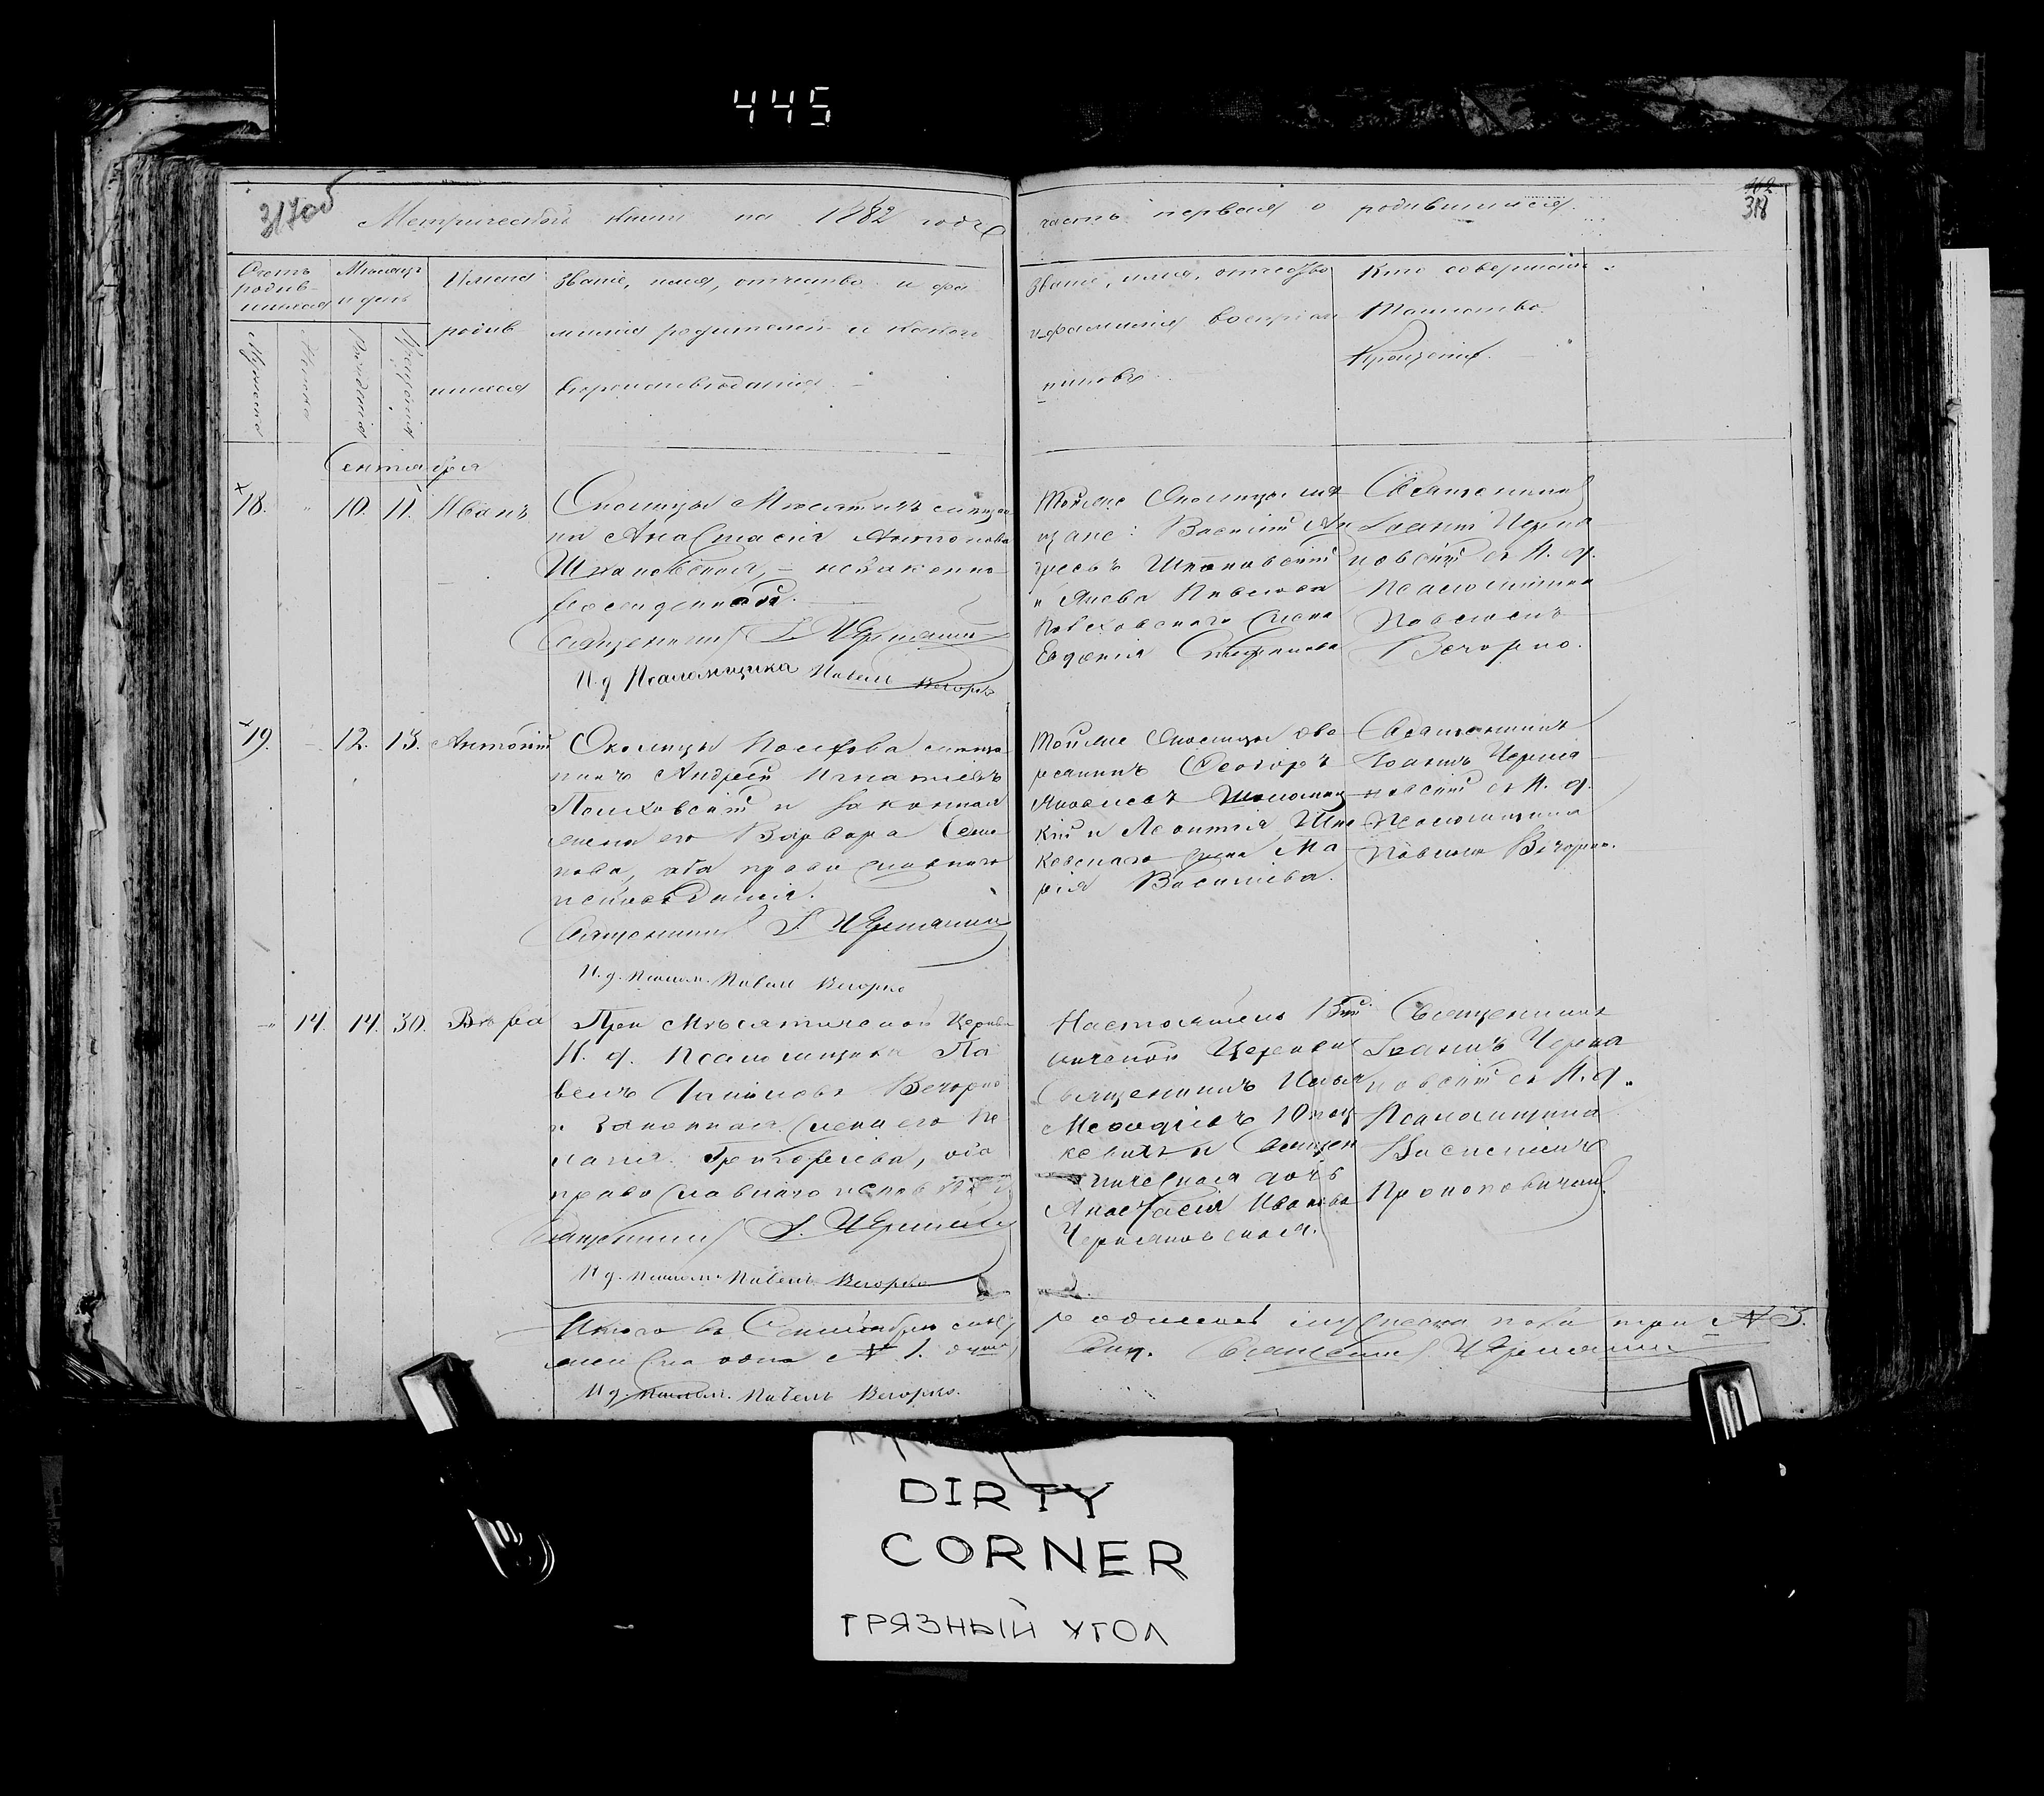 445
317об
Метрической книги на 1882 годъ
часть первая о родившихся.
318
Счетъ родив-шихся
Мѣсяцъ и день
Имена родив шихся
Званіе, имя, отчество и фа милія родителей и какого вѣроисповѣданія.
Званіе, имя, отчество и фамилія воспріем никовъ.
Кто совершалъ Таинство Крещенія.
Мужеска
Женска
Рожденія
Крещенія
Сентября
18. " 10. 11. Иванъ
Околицы Мѣсятичъ мѣщан
ка Анастасія Антонова
Шпаковская, - незаконно
рожденный.
Священникъ І. Черняковскій
И. д. Псаломщика Павелъ Вечорко
Тойже Околицы мѣ
щане: Василій Ан
дреевъ Шпаковскій
и Якова Павлова
жена
Евдокія Стефанова
Священникъ
Іоаннъ Черня
ковскій съ И. д.
Псаломщика
Павломъ
Вечорко.
19. 12. 13. Антоній
Околицы мѣща
нинъ Андрей Игнатіевъ
и законная
жена его Варвара Семе
нова, оба православнаго
исповѣданія.
Священникъ І. Черняковскій
И. д. Псалом. Павелъ Вечорко
Тойже Околицы дво
рянинъ Ѳеодоръ
Яковлевъ
кій и Леонтія Шпа
ковскаго жена Ма
рія Васильева.
Священникъ
Іоаннъ Черня
ковскій съ И. д.
Псаломщика
Павломъ Вечорко.
" 14. 14. 30. Вѣра
При Мѣсятичской Церкви
И. д. Псаломщика Па
велъ Вечорко
и Законная жена его Пе
лагія Григорьева, оба
православнаго исповѣд
Священникъ І. Черняковскій
И. д. Псалом. Павелъ Вечорко
Настоятель
ичской Церкви
Священникъ
Меѳодіевъ Юзу
кевичъ и Священ
ническая дочь
Анастасія Иванова
Черняковская.
Священникъ
Іоаннъ Черня
ковскій съ И. д.
Псаломщика
Василіемъ
Прокоповичемъ.
Итого въ Сентябрѣ мѣс
женска одна № 1. душъ
И д. Псалом. Павелъ Вечорко.
родилось мужеска пола три № 3.
Священникъ І Черняковскій
DIRTY
CORNER
ГРЯЗНЫЙ УГОЛ